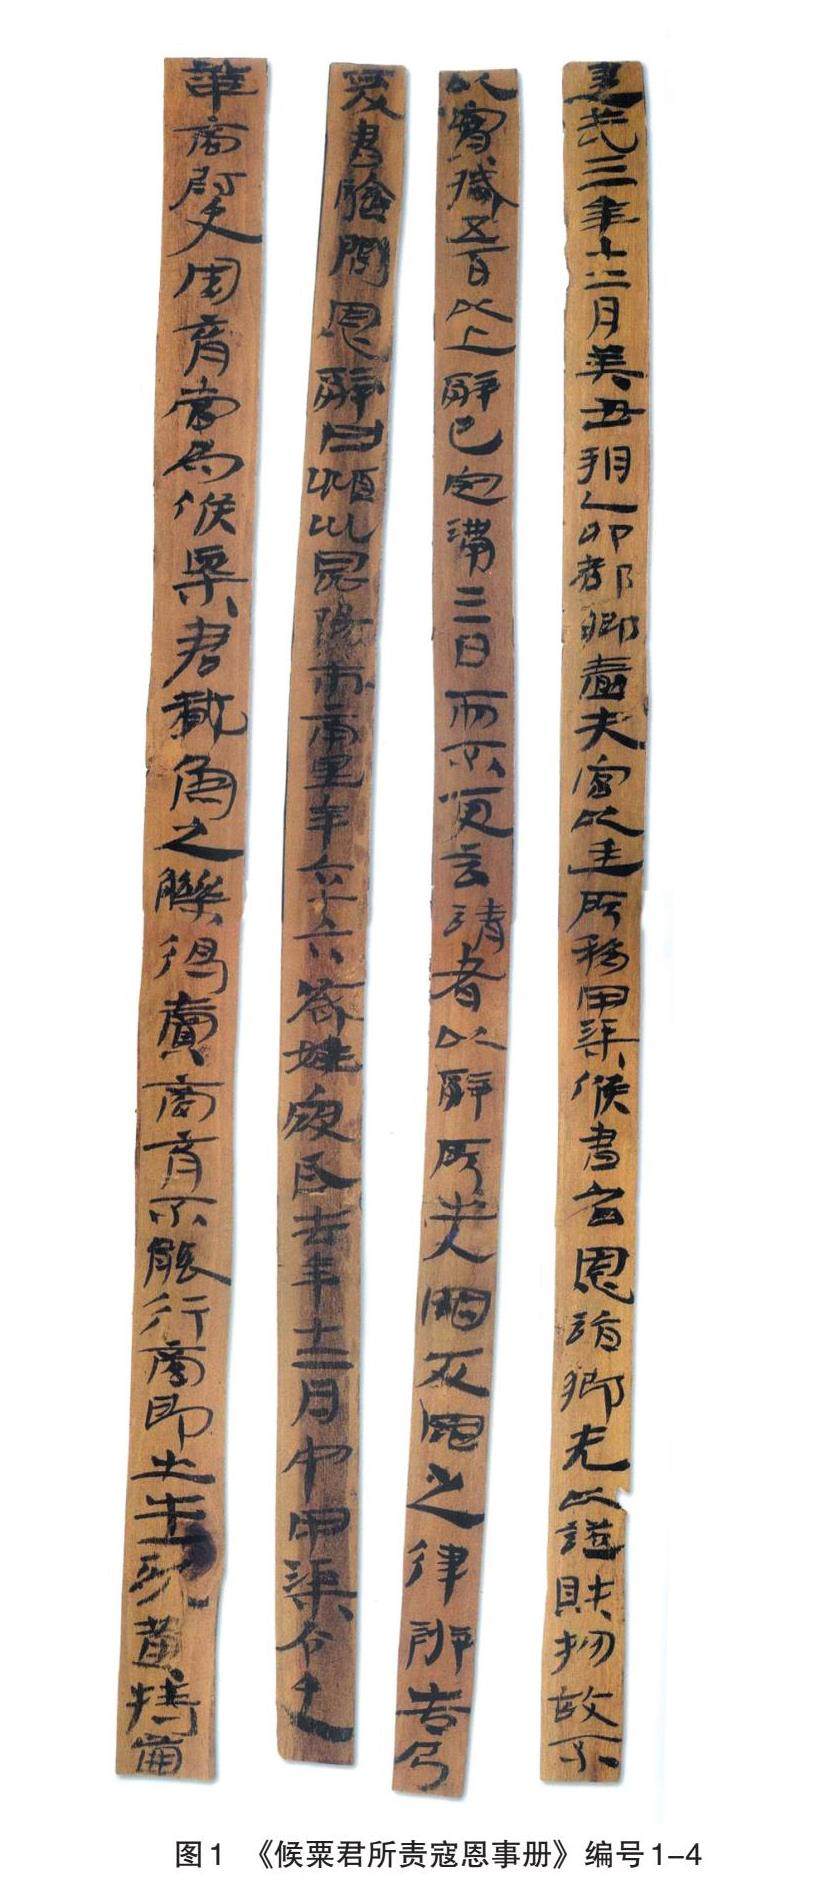 建武三年十二月癸丑朔乙卯都鄉嗇夫宮以廷所移甲渠候書召恩詣鄉先以證財物故不
以實臧五百以上辭已定滿三日而不更言請者以辭所出入罪反罪之律辨告乃
爰書驗問恩辭曰潁川昆陽市南里年六十六歲姓寇氏去年十二月中甲渠令史
華商尉史周育當為候粟君載魚之觻得賣商育不能行商即出牛一頭黃特齒
图1 《候粟君所责寇恩事册》编号1-4